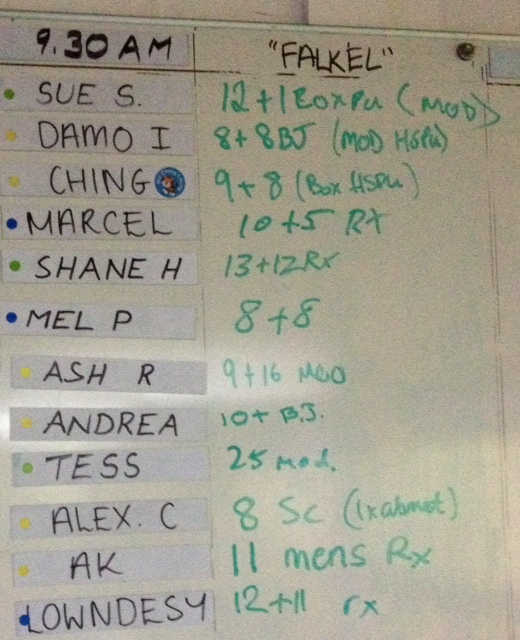 9.30 AM "FALKEL"
SUE S. 12+1 Box Pu (MOD)
DAMO I 8+8BJ (MOD HSPU)
CHING 9+8 (Box HSPU)
MARCEL 10+5 RX
SHANE H 13+12 Rx
MEL P 8+8
ASH R 9+16 MOD
ANDREA 10+ B.J.
TESS 25 mod.
ALEX. C 8 Sc (1xabmat)
AK 11 mens Rx
LOWNDESY 12+11 rx